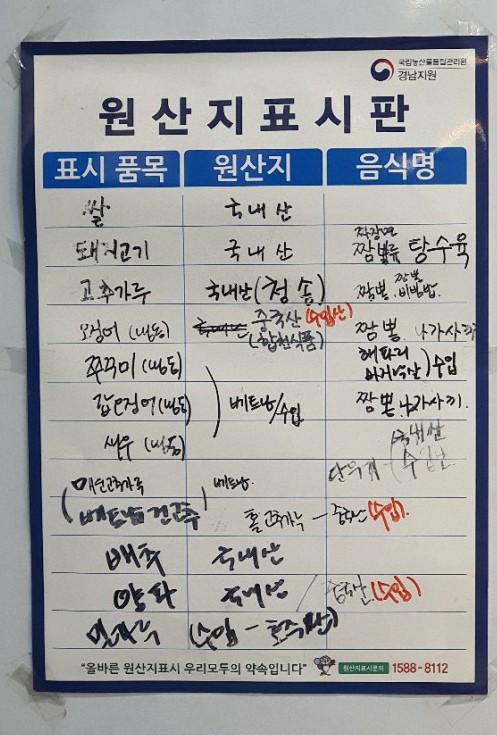 국립농산물품질관리원
경남지원
원산지표시판
표시 품목 원산지 음식명
쌀 국내산
돼지고기 국내산 짜장면 짬뽕류 탕수육
고추가루 국내산(청송) 짬뽕 짬뽕 비빔밥
오징어(냉동) 중국산(수입산) (합천식품) 짬뽕 나가사키
쭈꾸미(냉동) 해파리 수입
갑오징어(냉동) 베트남/수입 짬뽕 나가사키.
새우(냉동) 국내산
매운고추가루 베트남. 단무지 (수입산
(베트남건고추) 홀고추가루 - 중국산(수입).
배추 국내산
양파 국내산 / 중국산(수입)
밀가루 (수입 - 호주산)
"올바른 원산지표시 우리모두의 약속입니다" 원산지표시문의 1588-8112